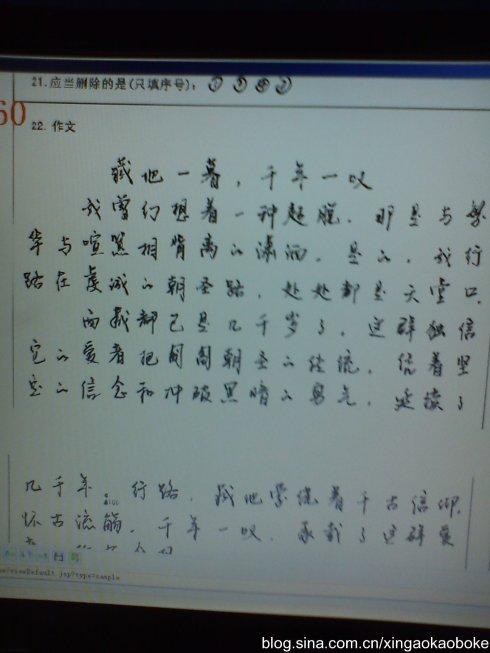 21.应当删除的是(只填序号):
60
22. 作文
藏地一暮，千年一叹
我曾幻想着一种超脱，那是与繁
华与喧嚣相背离的潇洒，是的，我行
路在虔诚的朝圣路，处处都是天堂口。
而我都已是几千岁了，这群独信
它的爱者把周周朝圣的传统，信着坚
定的信念和冲破黑暗的勇气，延续了
几千年。行路，藏地萦绕着千古信仰，
怀古流觞，千年一叹，承载了这群爱
jsp?type=sample
blog.sina.com.cn/xingaokaoboke